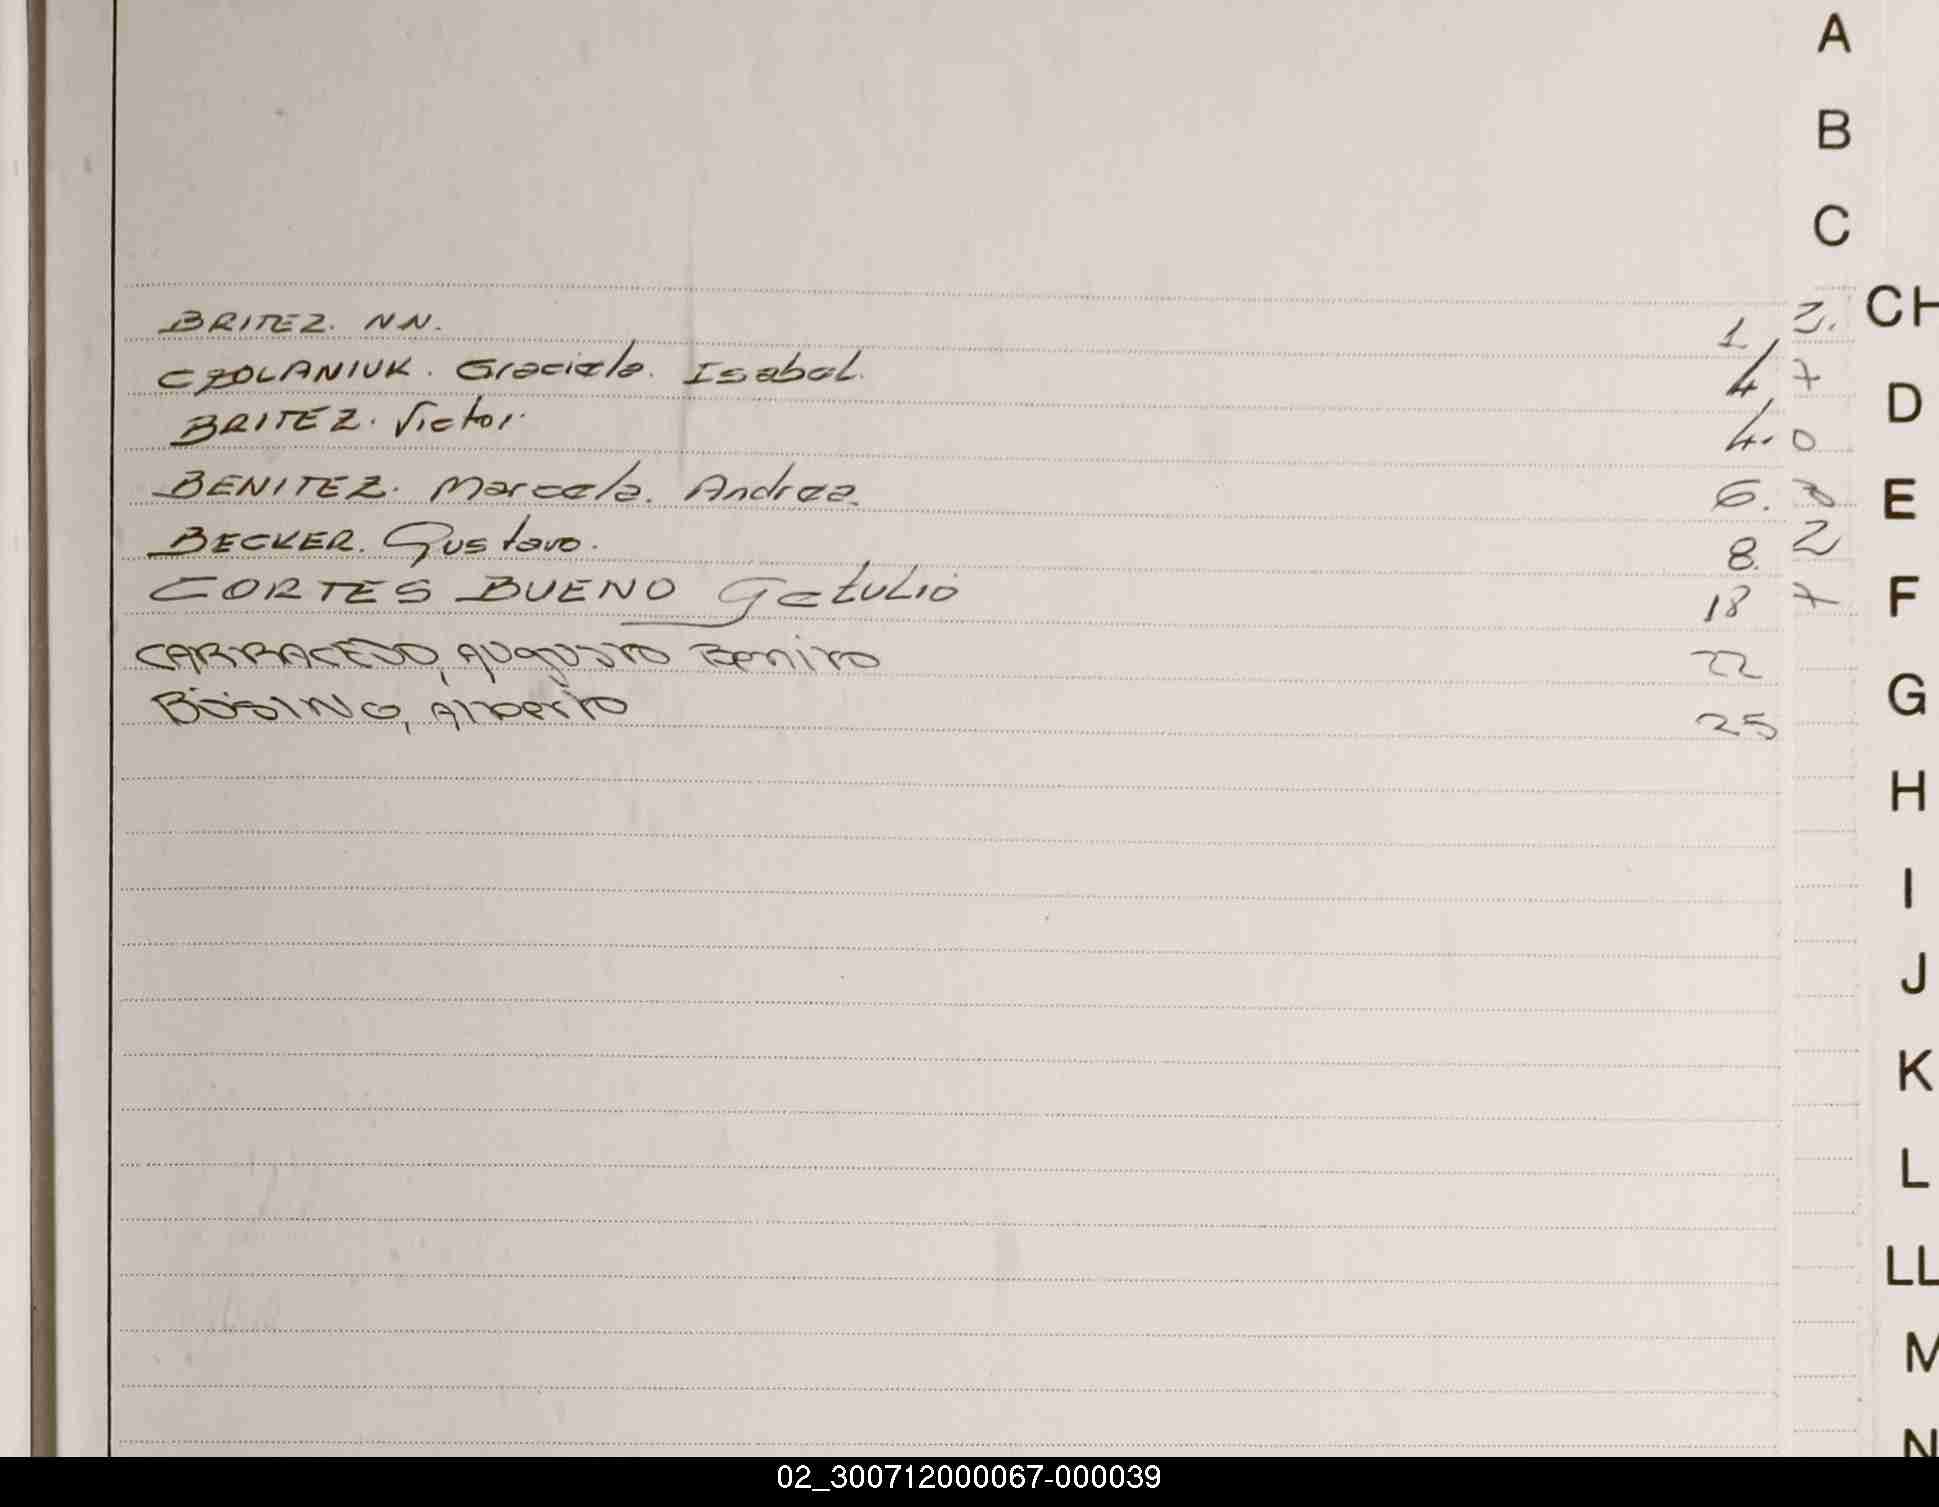 A
B
C
CH
D
E
F
G
H
I
J
K
L
LL
M
N
BRITEZ. NN. 1
CZOLANIUK. Graciela. Isabel. 4
BRITEZ. Victor. 4.
BENITEZ. Marcela. Andrea. 6.
BECKER. Gustavo. 8.
CORTES BUENO Getulio 18
CARRACEDO, Augusto Benito 22
BÖSING, Alberto 25
2.
7
0
2
7
02_300712000067-000039